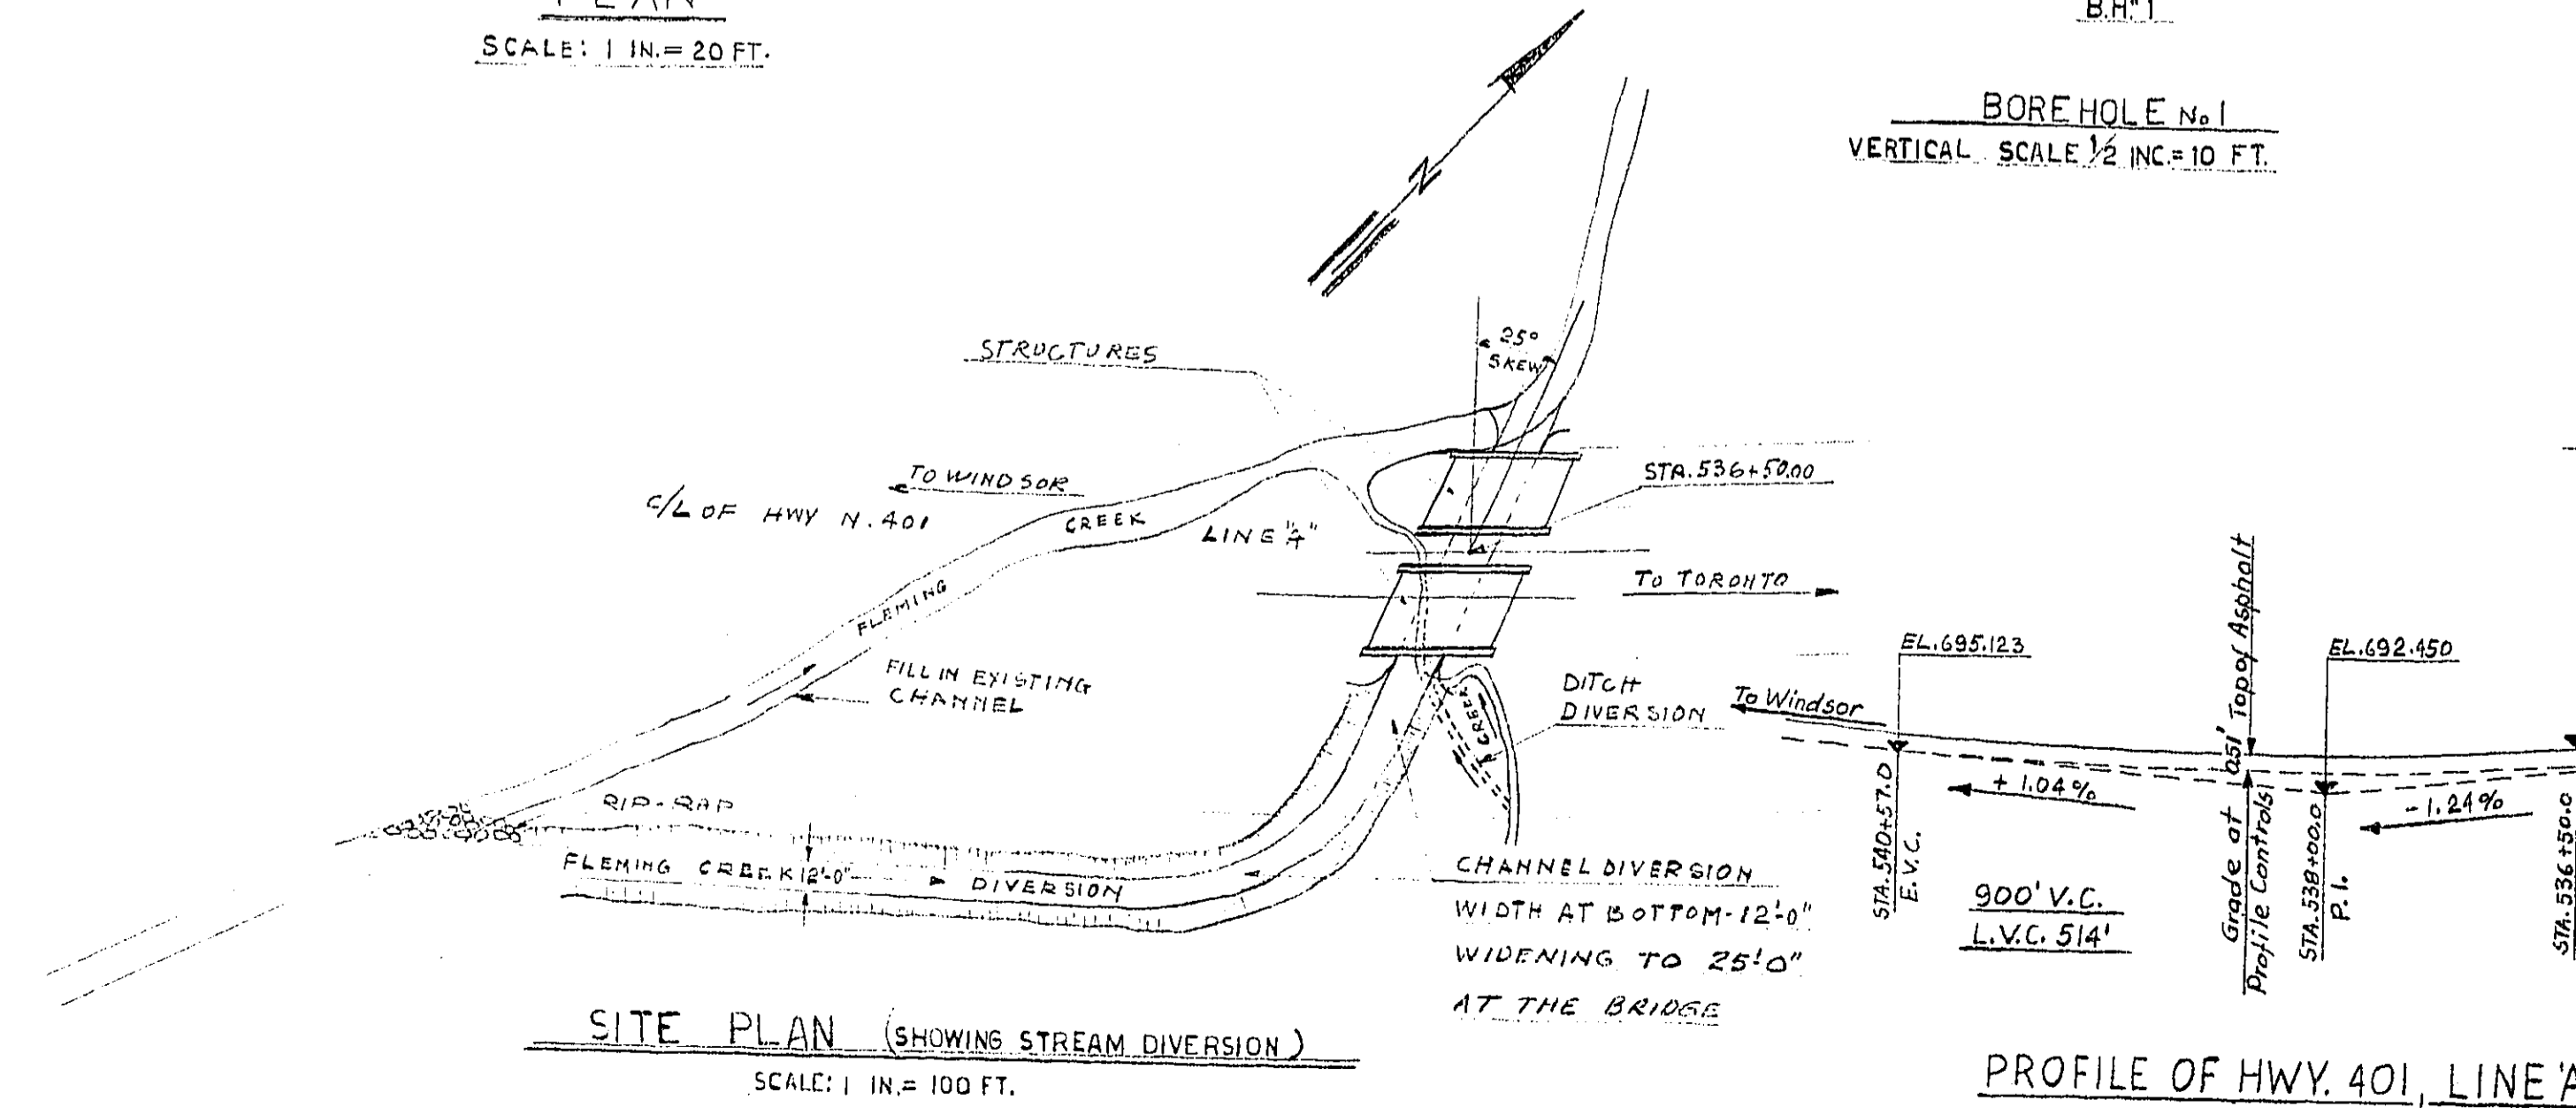 PLAN
SCALE: 1 IN.= 20 FT.
B.H. 1
BOREHOLE No 1
VERTICAL SCALE 1/2 INC.= 10 FT.
N
25°
SKEW
STRUCTURES
TO WINDSOR
C/L OF HWY N. 401
CREEK
LINE "A"
STA. 536+50.00
TO TORONTO
FLEMING
FILL IN EXISTING
CHANNEL
DITCH
DIVERSION
CREEK
RIP-RAP
FLEMING CREEK 12'-0" DIVERSION
CHANNEL DIVERSION
WIDTH AT BOTTOM-12'-0"
WIDENING TO 25'-0"
AT THE BRIDGE
SITE PLAN (SHOWING STREAM DIVERSION)
SCALE: 1 IN.= 100 FT.
To Windsor
EL.695.123
STA. 540+57.0
E.V.C.
+ 1.04%
900' V.C.
L.V.C. 514'
0.51' Top of Asphalt
Grade at
Profile Controls
EL.692.450
STA. 538+00.0
P.I.
- 1.24%
STA. 536+50.0
PROFILE OF HWY. 401, LINE 'A